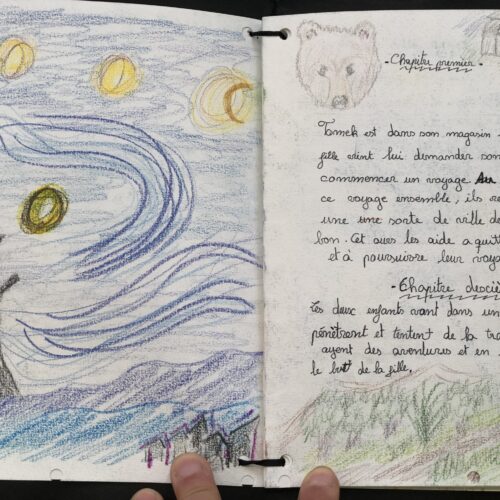 - Chapitre premier -
Tomek est dans son magasin
fille vient lui demander son
commencer un voyage Au
ce voyage ensemble, ils re
une une sorte de ville de
bon. Cet ours les aide a quitt
et à poursuivre leur voya
- Chapitre deuxiè
Les deux enfants vont dans un
pénètrent et tentent de la tra
ayent des aventures et en
le but de la fille.